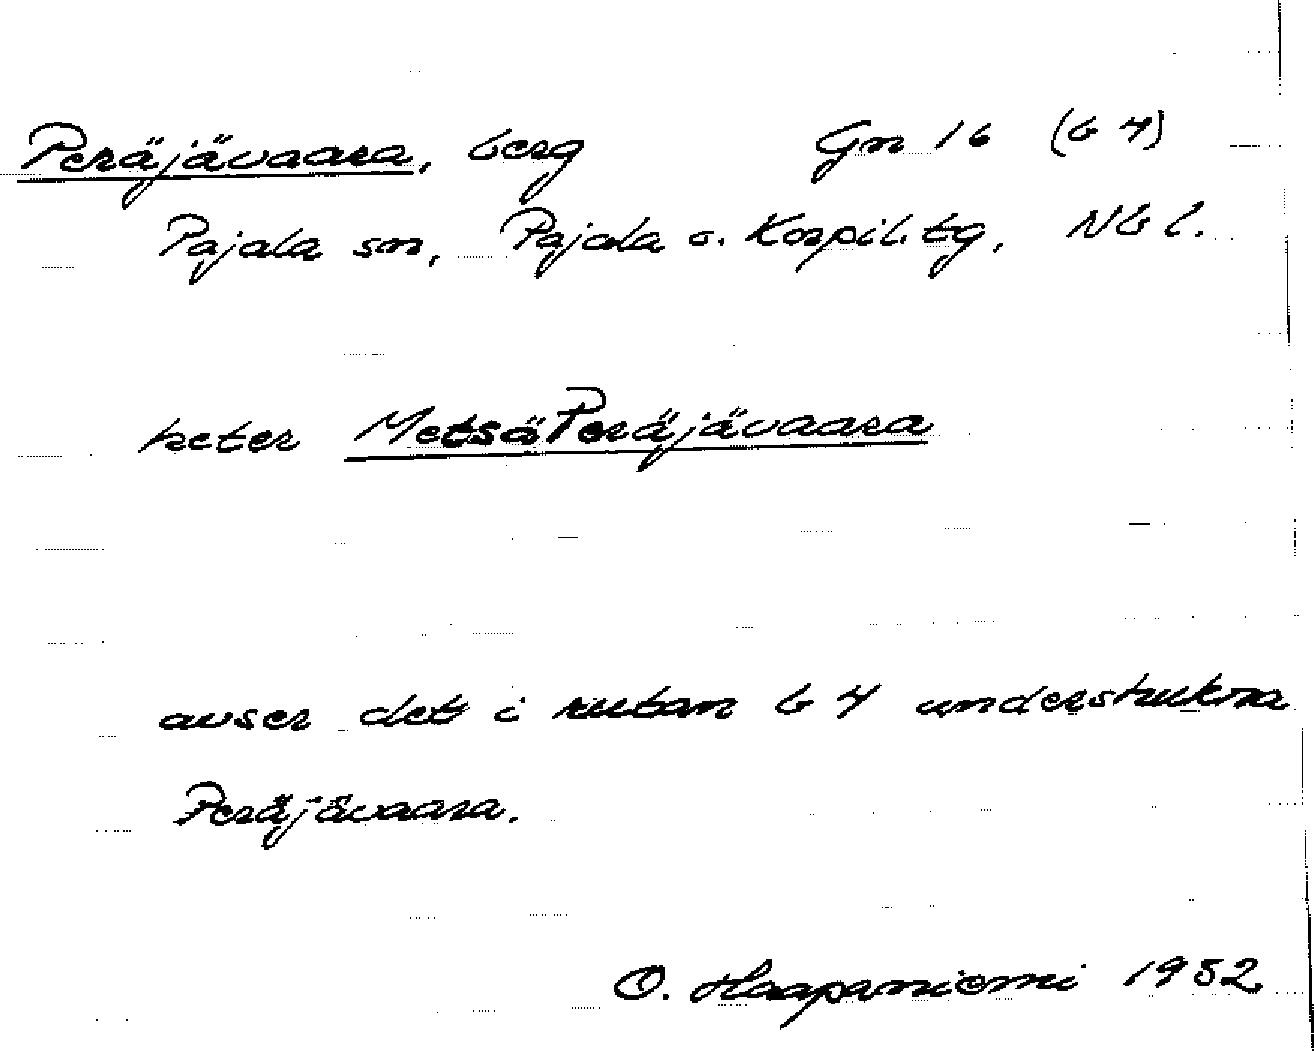 Peräjävaara, berg Gn 16 (b 4)
Pajala sn, Pajala o. Korpil. tg, Nb l.
heter MetsäPeräjävaara
avser det i rutan b 4 understrukna
Peräjävaara.
O. Haapaniemi 1952